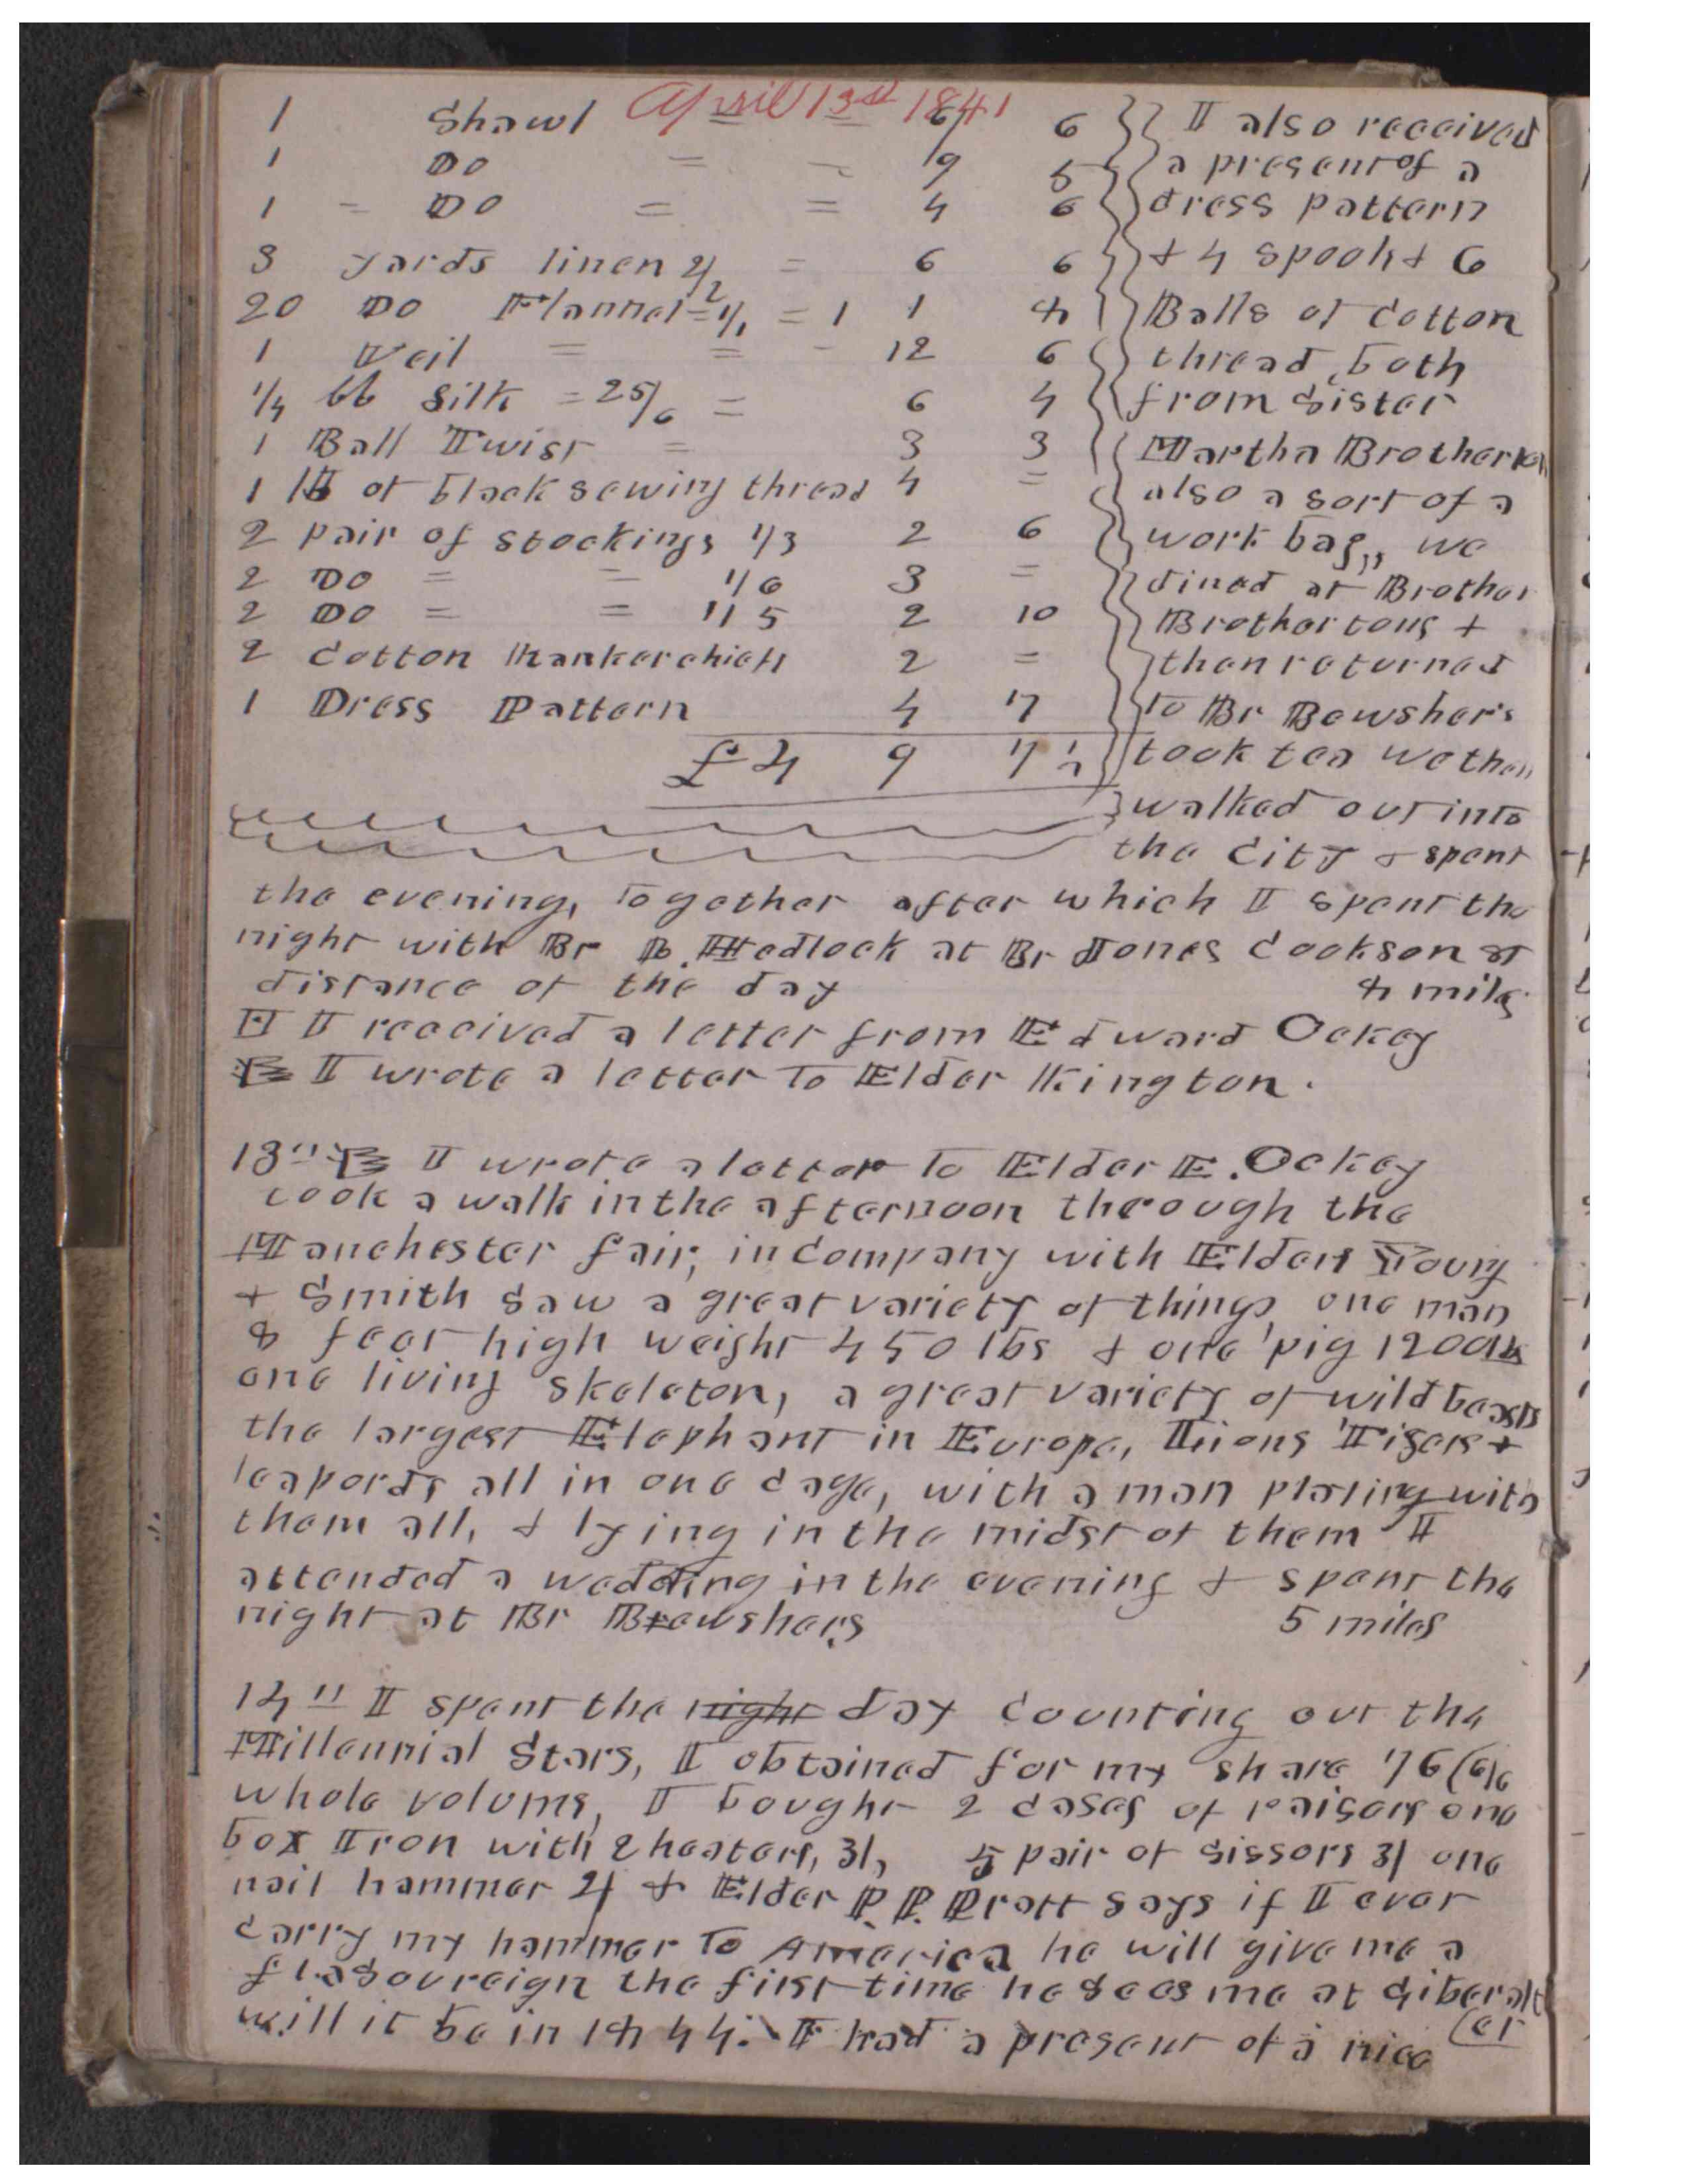 April 13th 1841
1 Shawl = = 6/ 6
1 Do = - 9 5
1 - Do = = 4 6
3 yards linen 2/2 = 6 6
20 Do Flannel = 1/1 = 1 1 8
1 Veil = = - 12 6
1/4 lb Silk = 25/6 = 6 4
1 Ball Twist = 3 3
1 lb of black sewing thread 4 =
2 pair of stockings 1/3 2 6
2 Do = = 1/6 3 =
2 Do = = 1/5 2 10
2 Cotton Hankerchiefs 2 =
1 Dress Pattern 4 7
£4 9 7
I also received
a present of a
dress pattern
& 4 spools & 6
Balls of Cotton
thread, both
from Sister
Martha Brotherton
also a sort of a
work bag,, we
dined at Brother
Brothertons &
then returned
to Br Bewsher's
took tea we then
walked out into
the City & spent
the evening, together after which I spent the
night with Br R. Hedlock at Br Jones Cookson st
distance of the day 8 mils
I received a letter from Edward Ockey
I wrote a letter to Elder Kington.
13" I wrote a letter to Elder E. Ockey
took a walk in the afternoon therough the
Manchester fair, in Company with Elders Young
& Smith saw a great variety of things, one man
8 feet high weight 450 lbs & one pig 1200 lbs
one living skeleton, a great variety of wild beasts
the largest Elephant in Europe, Lions Tigers &
leapords all in one Cage, with a man plaling with
them all, & lying in the midst of them I
attended a wedding in the evening & spent the
night at Br Bewshers 5 miles
14" I spent the night day Counting out the
Millennial Stars, I obtained for my share 76
whole volums, I bought 2 Cases of raisors one
box Iron with 2 heaters, 3/, 5 pair of sissors 3/ one
nail hammer 2/ & Elder P. P. Pratt says if I ever
Carry my hammer to America he will give me a
£1 asovreign the first time he sees me at Giberalt
(er
will it be in 1844. I had a present of a nice